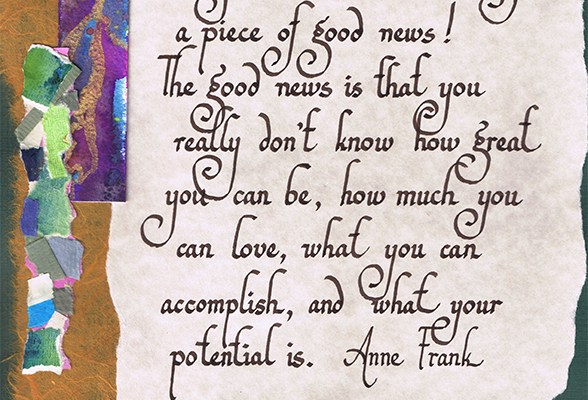 a piece of good news!
The good news is that you
really don't know how great
you can be, how much you
can love, what you can
accomplish, and what your
potential is. Anne Frank